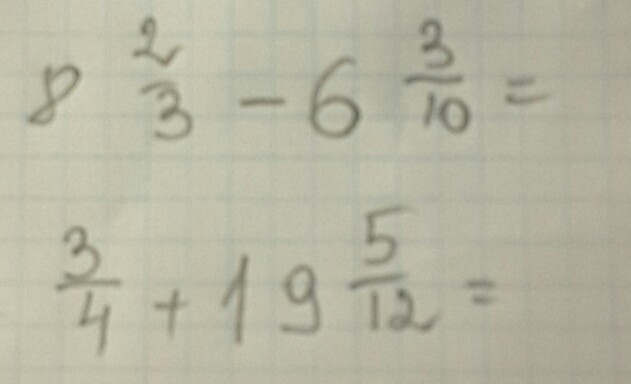 8 2/3 - 6 3/10 =
3/4 + 19 5/12 =